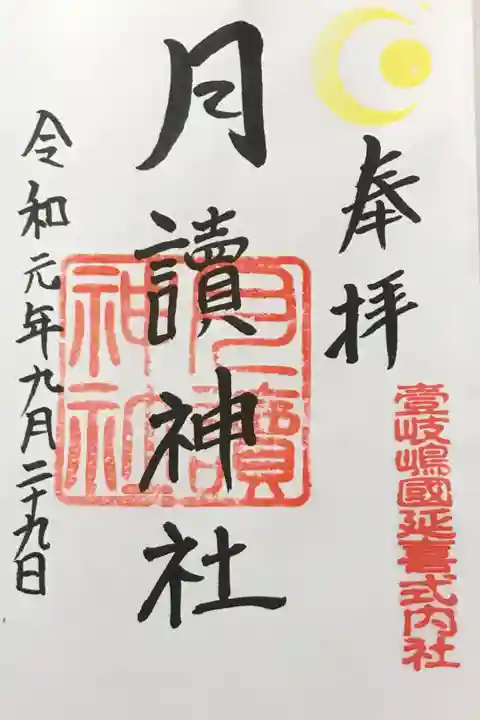 奉拝
壹岐嶋國延喜式内社
月讀神社
月讀神社
令和元年九月二十九日